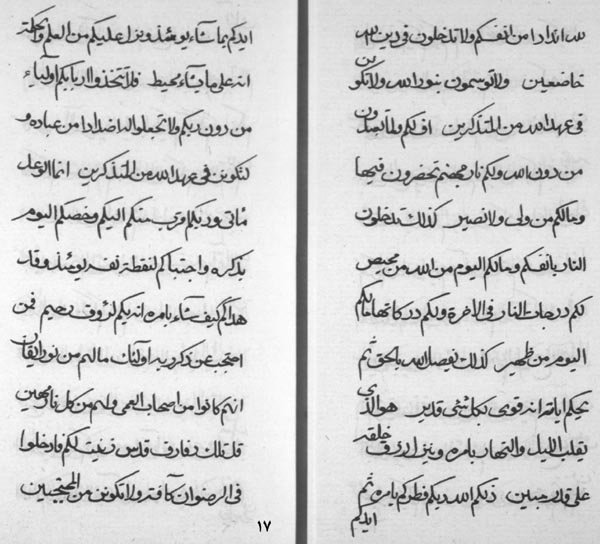 لله اندادا من انفسكم ولا تدخلون في دين الله
خاضعين ولا توسمون بنور الله ولا تكونن
في عهد الله من المتذكرين اف لكم ولما تعبدون
من دون الله ولكم نار جهنم تحضرون فيها
وما لكم من ولي ولا نصير كذلك تدخلون
النار بانفسكم وما لكم اليوم من الله من محيص
لكم درجات النار في الاخرة ولكم دركاتها مالكم
اليوم من ظهير كذلك يفصل الله بالحق ثم
يحكم اياته انه قوي بكل شئ قدير هو الذي
يقلب الليل والنهار بامره وينزل خلقه
على قدر مبين ذلكم الله ربكم فطركم بامره ثم
ايدكم
ايدكم بما شاء يومئذ ونزل عليكم من العلم والحكمة
انه على ما يشاء محيط فلا تتخذوا اربابكم اولياء
من دون ربكم ولا تجعلوا له اضدادا من عباده و
كونن في عهد الله من المتذكرين انما الوعد
مأتي وربكم قرب منكم اليكم وخصكم اليوم
بذكره واجتباكم لنقطة يومئذ وقد
هداكم كيف شاء بامره انه بكم لرؤف رحيم فمن
احتجب عن ذكر ربه اولئك ما لهم من نور الايقان
انهم كانوا من اصحاب العمى ولهم من كل نار
قل تلك رفارف قدس زينت لكم فادخلوا
في الرضوان كافة ولا تكونن من المحتجبين
١٧